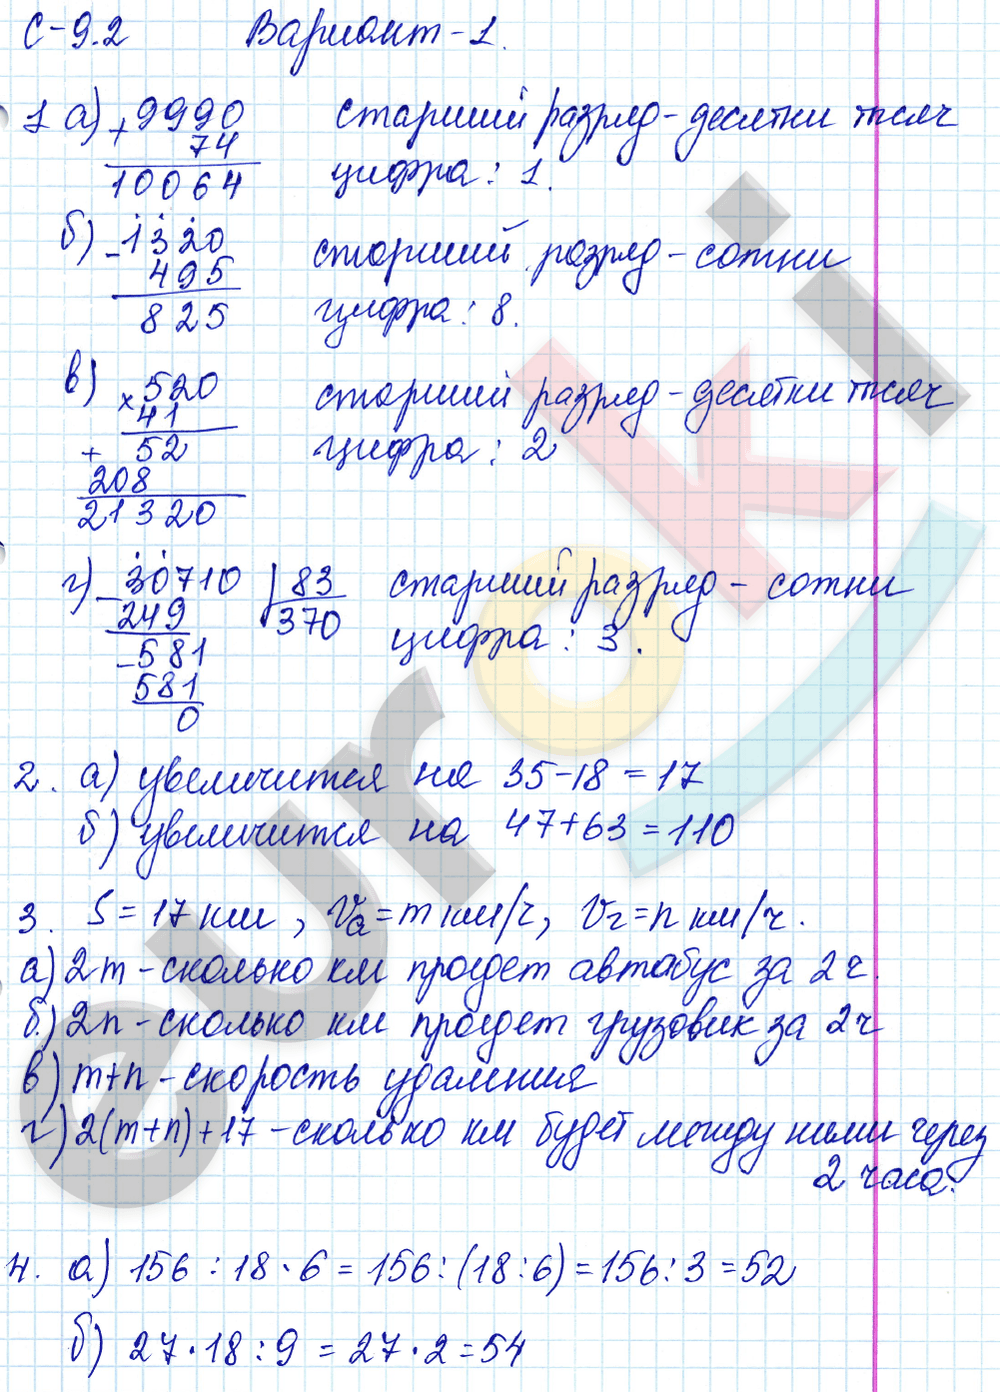 С-9.2 Вариант-1.
1 а) +9990 старший разряд - десятки тысяч
74
10064 цифра: 1.
б) -1320 старший разряд - сотни
495
825 цифра: 8.
в) ×520 старший разряд - десятки тысяч
41
+ 52 цифра: 2
208
21320
г) -30710 | 83 старший разряд - сотни
249 370 цифра: 3.
-581
581
0
2. а) увеличится на 35-18=17
б) увеличится на 47+63=110
3. S=17 км, Vа=m км/ч, Vг=n км/ч.
а) 2m - сколько км проедет автобус за 2ч.
б) 2n - сколько км проедет грузовик за 2ч
в) m+n - скорость удаления
г) 2(m+n)+17 - сколько км будет между ними через
2 часа.
4. а) 156:18·6=156:(18:6)=156:3=52
б) 27·18:9=27·2=54
euroki